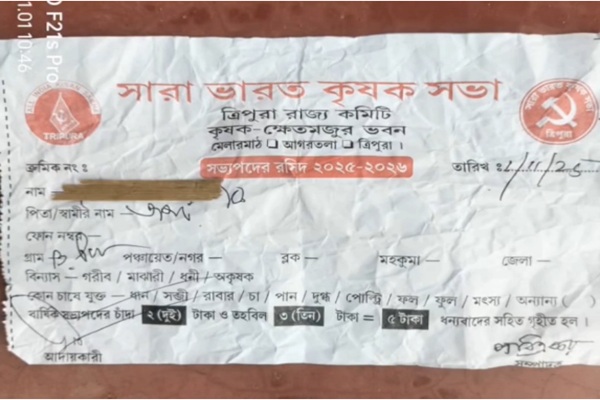 F21s Pro
1.01 10:46
সারা ভারত কৃষক সভা
ত্রিপুরা রাজ্য কমিটি
কৃষক-ক্ষেতমজুর ভবন
মেলারমাঠ ❑ আগরতলা ❑ ত্রিপুরা ।
TRIPURA
ত্রিপুরা
ক্রমিক নং ঃ
সভ্যপদের রসিদ ২০২৫-২০২৬
তারিখ ঃ /11/25
নাম —
পিতা/স্বামীর নাম —
ফোন নম্বর —
গ্রাম পঞ্চায়েত/নগর — ব্লক — মহকুমা — জেলা —
বিন্যাস – গরীব / মাঝারী / ধনী / অকৃষক
কোন চাষে যুক্ত — ধান / সব্জী / রাবার / চা / পান / দুগ্ধ / পোল্ট্রি / ফল / ফুল / মৎস্য / অন্যান্য ( )
বার্ষিক সভ্যপদের চাঁদা ২ (দুই) টাকা ও তহবিল ৩ (তিন) টাকা = ৫ টাকা ধন্যবাদের সহিত গৃহীত হল ।
আদায়কারী
সম্পাদক